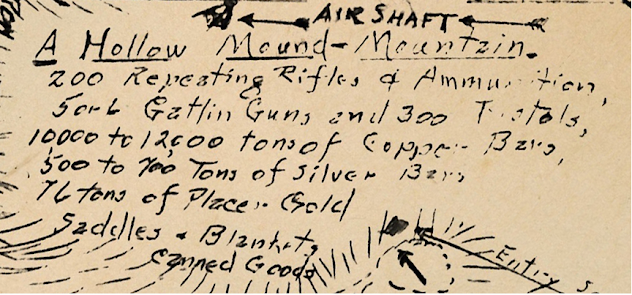 AIR SHAFT
A Hollow Mound-Mountain.
200 Repeating Rifles & Ammunition,
5 or 6 Gatlin Guns and 300 Pistols,
10000 to 12,000 tons of Copper Bars,
500 to 700 Tons of Silver Bars
76 tons of Placer Gold
Saddles & Blankets
Canned Goods
Entry